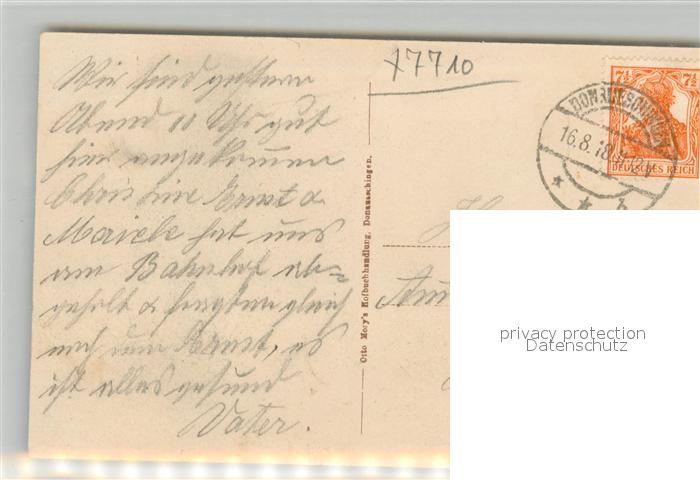 x7710
Wir sind gestern
Abend 11 Uhr gut
hier angekommen
Christine Ernst &
Mariele hat uns
am Bahnhof ab=
geholt & fragten gleich
nach dem Ernst, es
ist alles gesund
Vater.
Otto Mory's Hofbuchhandlung, Donaueschingen.
7½ 7½
DEUTSCHES REICH
DONAUESCHINGEN
16.8.18
* * b
privacy protection
Datenschutz